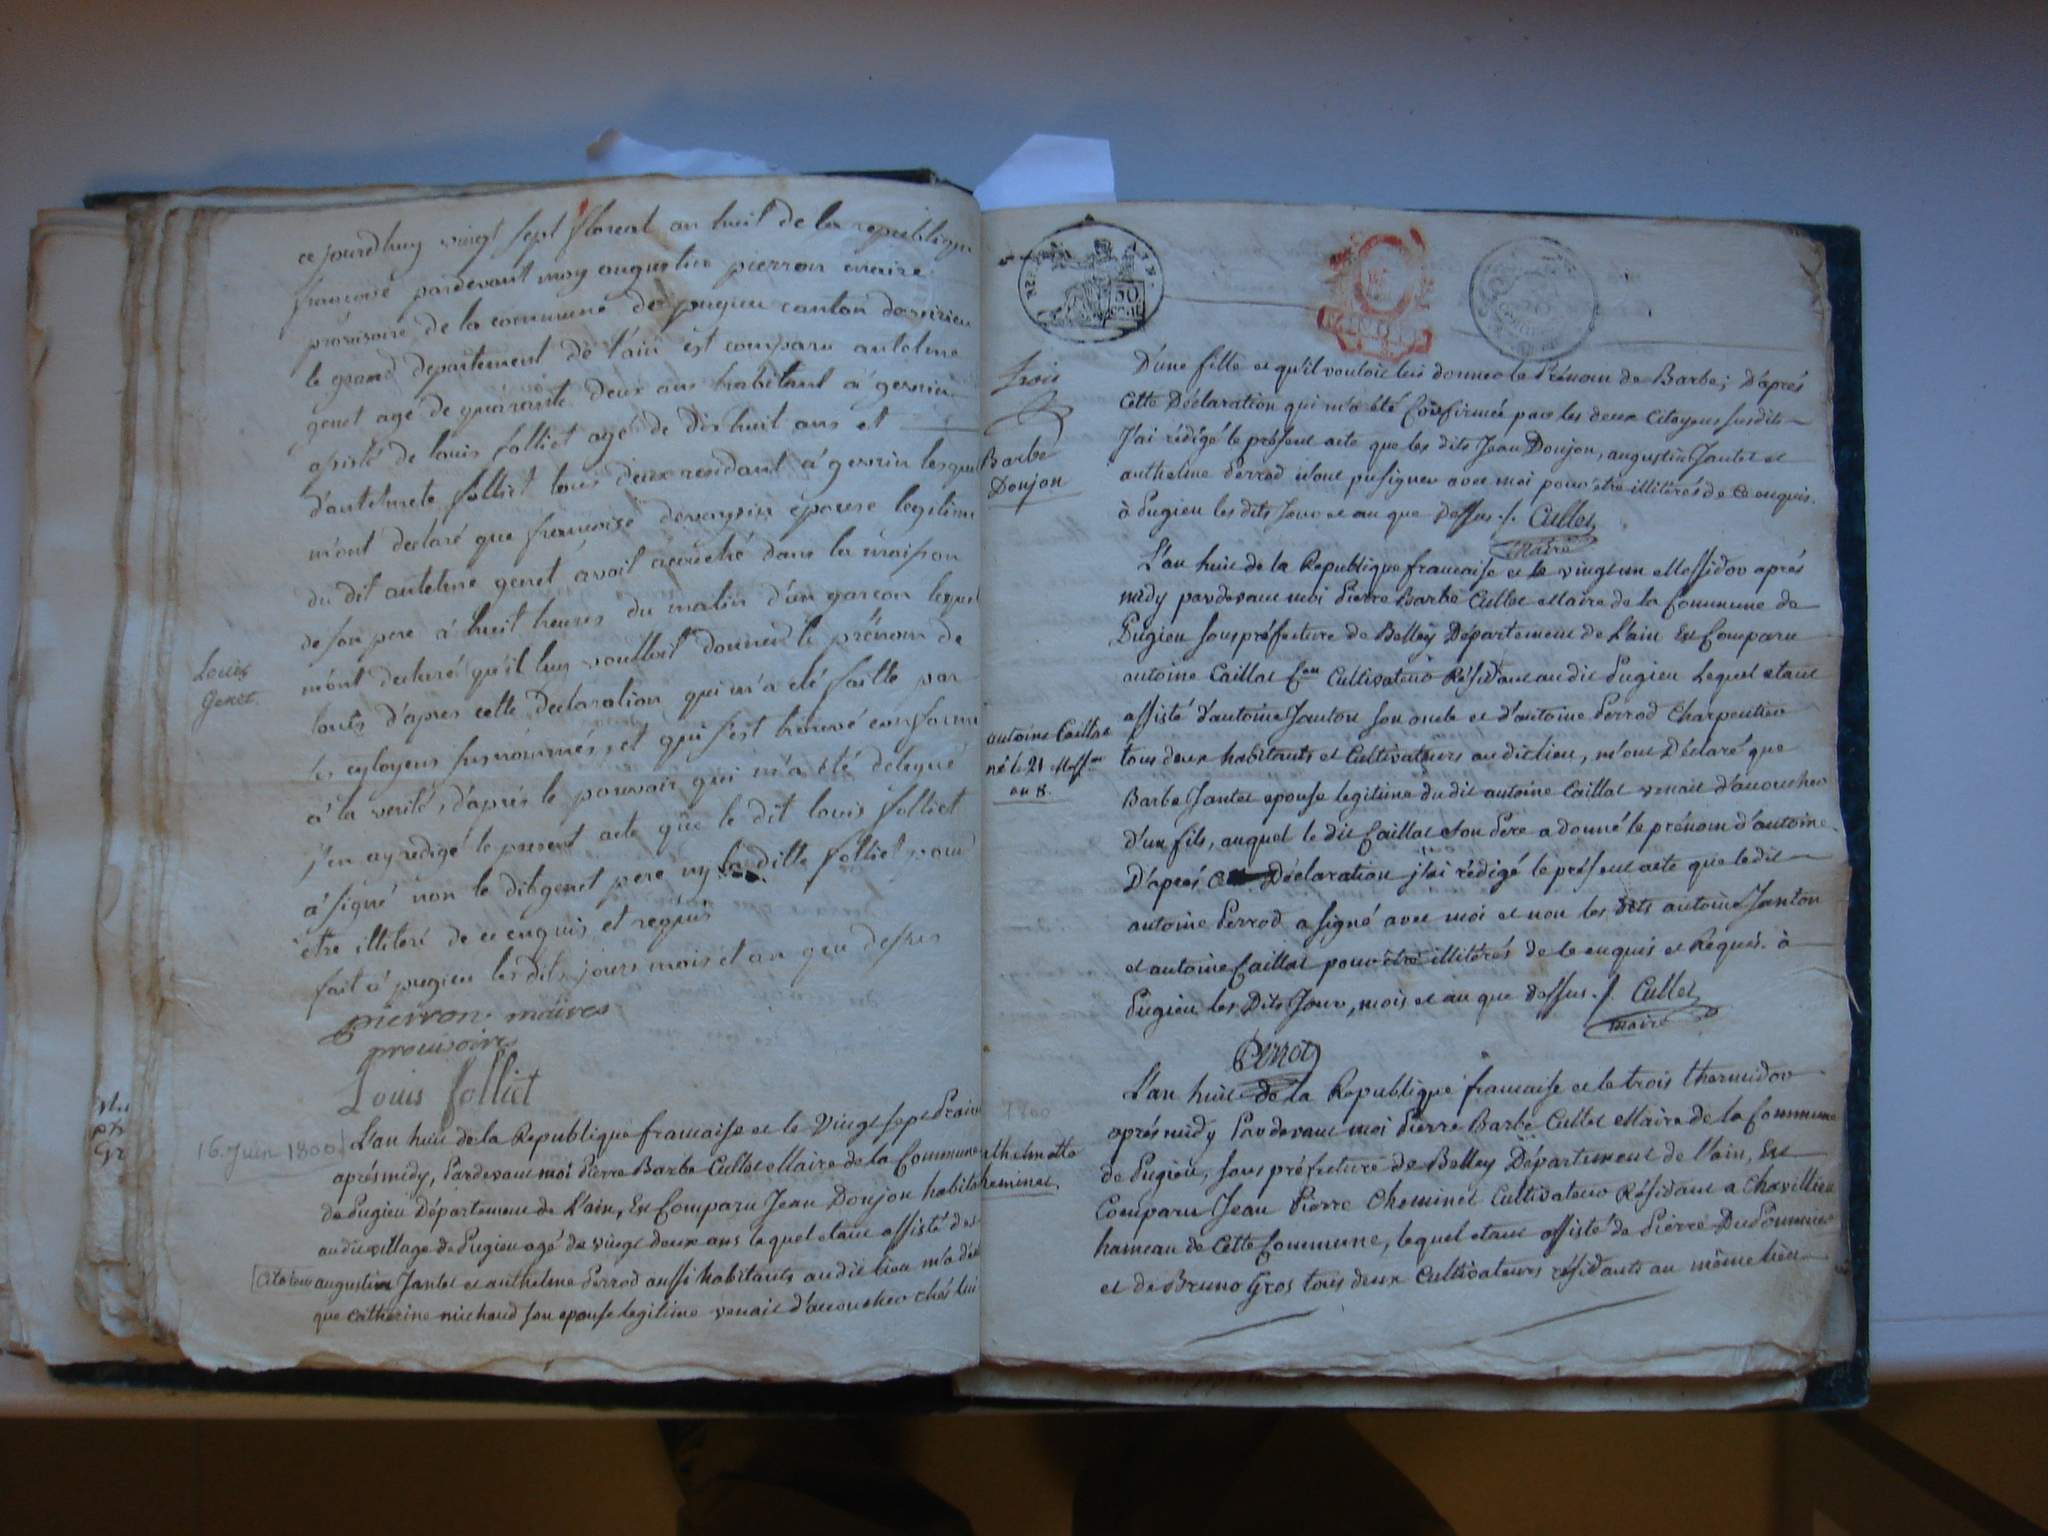 ce jourdhuy vingt sept floreal an huit de la republique
francoise pardevant moy augustin pierron maire
provisoire de la commune de pugieu canton de virieu
le grand departement de l'ain est comparu antelme
genet agé de quarante deux ans habitant à gevrin
assisté de louis folliet agé de dix huit ans et
d'antelmete folliet tous deux residant à gevrin lesquel
m'ont declaré que francoise devaysin épouse legitime
du dit antelme genet avoit acouché dans la maison
de son pere à huit heures du matin d'un garcon lequel
Louis
Genet.
m'ont declaré qu'il luy voulloit donner le prénom de
louis d'apres cette declaration qui m'a été faitte par
les cytoyens susnommés, et qui s'est trouvé conforme
à la verité, d'aprés le pouvoir qui m'a été delegué
j'en ay redigé le present acte que le dit louis folliet
à signé non le dit genet pere ny la ditte folliet pour
être illiteré de ce enquis et requis
fait à pugieu les dits jours mois et an que dessus
pierron maires
provisoire
Louis folliet
16. Juin 1800
L'an huit de la Republique francaise et le Vingt sept Prair
aprés midy, Pardevant moi Pierre Barbe Cullet Maire de la Commune
de Pugieu Département de L'ain, Est Comparu Jean Donjon habita
au dit village de Pugieu agé de vingt deux ans lequel etant assisté des
Citoiens augustin Jantet et anthelme Perrod aussi habitants au dit lieu m'a déc
que Catherine michaud son epouse legitime venait d'accoucher chés lui
trois
D'une fille et qu'il vouloit lui donner le Prénom de Barbe; D'aprés
Cette Déclaration qui m'a été Confirmée par les deux Citoyens susdits
J'ai rédigé le présent acte que les dits Jean Donjon, augustin Jantet et
Barbe
Donjon
anthelme Perrod n'ont pu signer avec moi pour être illitérés de ce enquis.
à Pugieu les dits Jour et an que dessus ./. Cullet
maire
L'an huit de la Republique francaise et le vingt un Messidor aprés
midy pardevant moi Pierre Barbe Cullet Maire de la Commune de
Pugieu sous préfecture de Belley Département de L'ain Est Comparu
antoine Caillat Cultivateur Résidant au dit Pugieu Lequel etant
assisté d'antoine Janton son oncle et d'antoine Perrod Charpentier
antoine Caillat
né le 21 Messor
an 8.
tous deux habitants et Cultivateurs au dit lieu, m'ont Déclaré que
Barbe Jantet epouse legitime du dit antoine Caillat venait d'accoucher
d'un fils, auquel le dit Caillat son Pere a donné le prénom d'antoine.
D'aprés Déclaration j'ai rédigé le présent acte que le dit
antoine Perrod a signé avec moi et non les dits antoine Janton
et antoine Caillat pour être illitérés de ce enquis et Requis. à
Pugieu les Dits Jour, mois et an que dessus ./. Cullet
maire
Perrod
1800
L'an huit de la Republique francaise et le trois thermidor
aprés midy Pardevant moi Pierre Barbe Cullet Maire de la Commune
thelmette
heminet.
de Pugieu, sous préfecture de Belley Département de l'ain, Est
Comparu Jean Pierre Cheminet Cultivateur Résidant a Chavillieu
hameau de Cette Commune, lequel etant assisté de Pierre DuPommier
et de Bruno Gros tous deux Cultivateurs résidants au même lieu